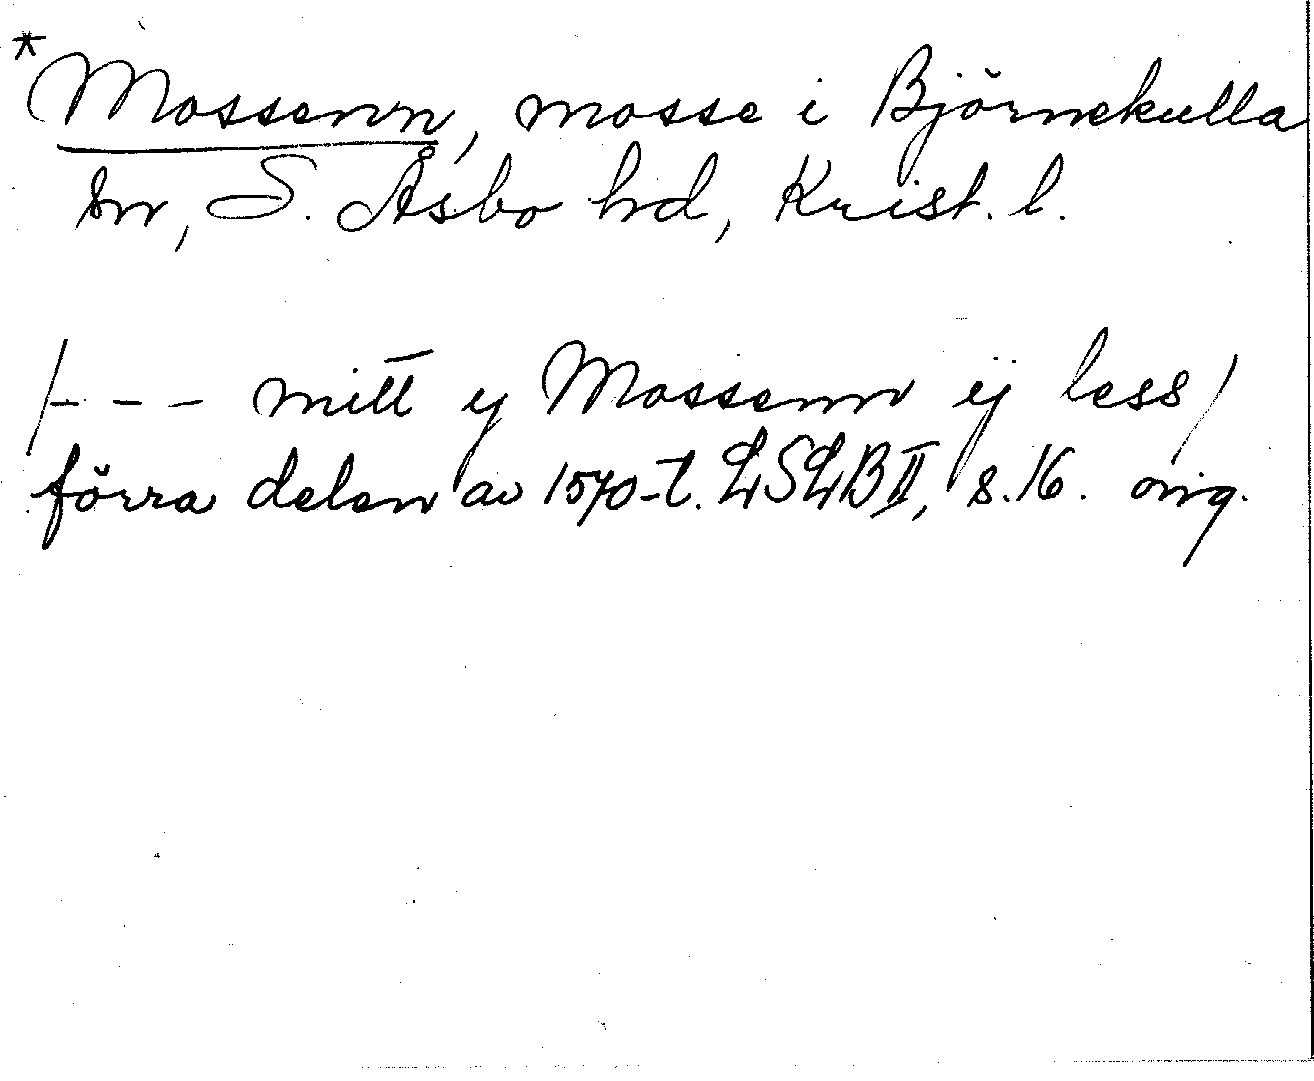 *Mossenn, mosse i Björnekulla
sn, S. Åsbo hd, Krist. l.
/--- mitt y Mossenn ij less/
förra delen av 1570-t. LSLB II, s. 16. orig.